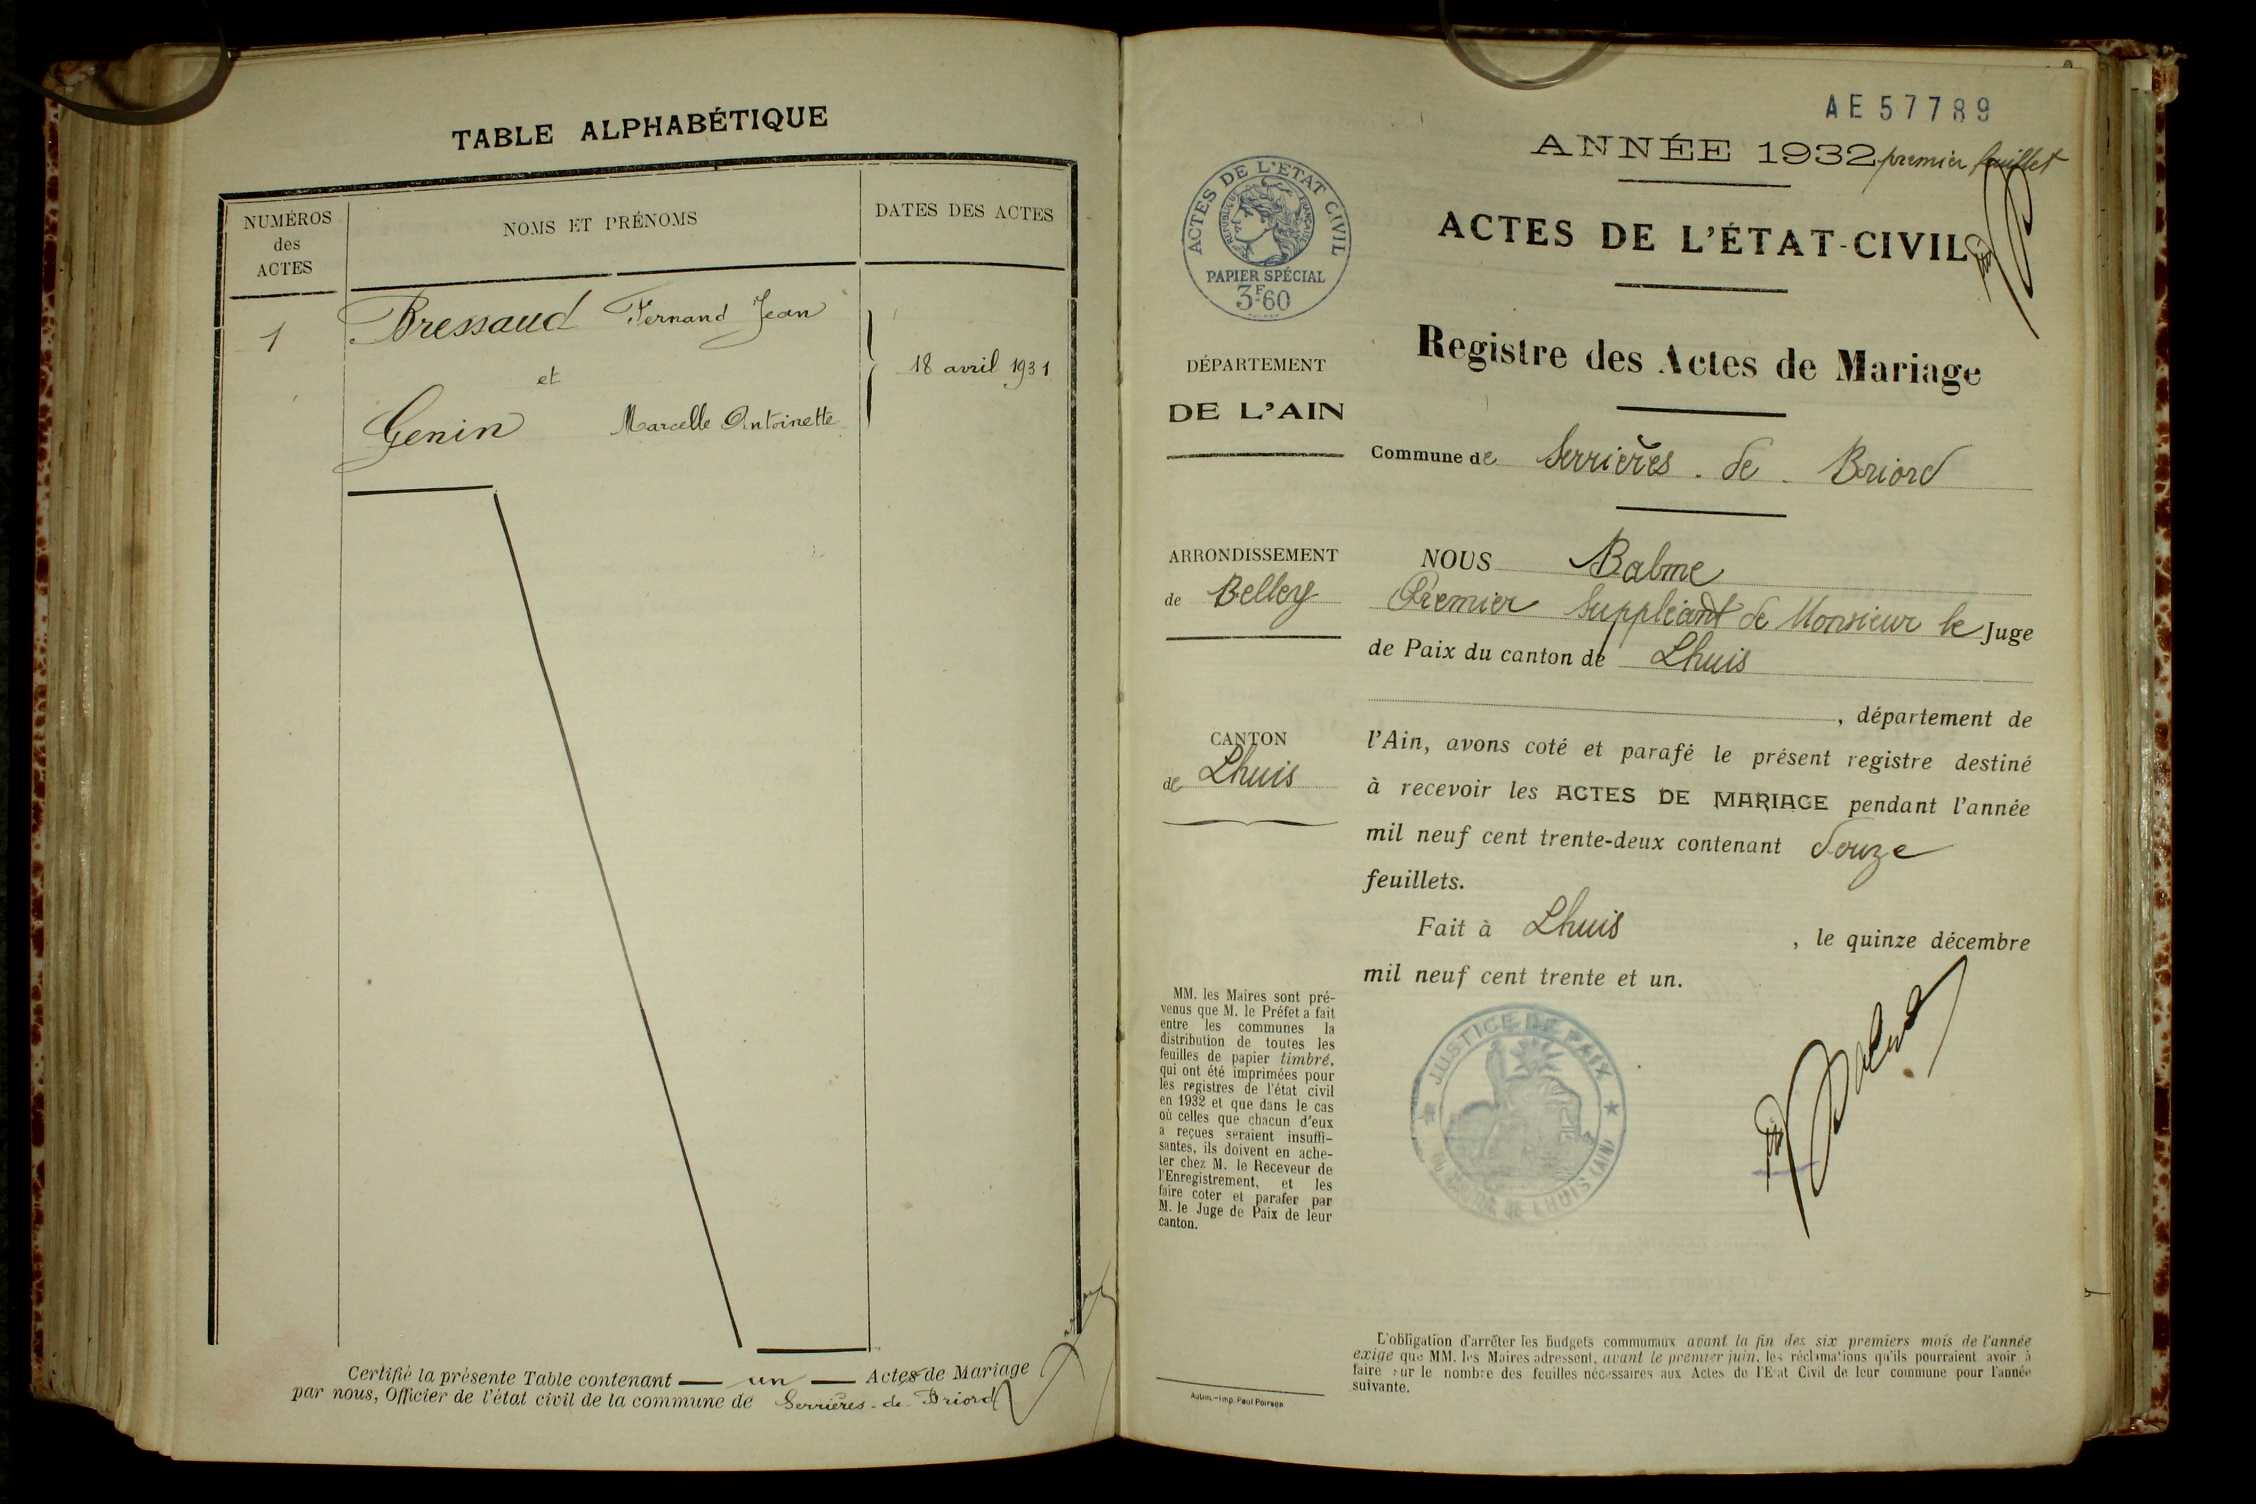 TABLE ALPHABÉTIQUE
NUMÉROS
des
ACTES
NOMS ET PRÉNOMS
DATES DES ACTES
1
Bressaud Fernand Jean
et
Genin Marcelle Antoinette
18 avril 1931
Certifié la présente Table contenant un Actes de Mariage
par nous, Officier de l'état civil de la commune de Serrières-de-Briord
AE 57789
ANNÉE 1932 premier feuillet
ACTES DE L'ÉTAT CIVIL
REPUBLIQUE FRANÇAISE
PAPIER SPÉCIAL
3F60
ACTES DE L'ÉTAT-CIVIL
Registre des Actes de Mariage
DÉPARTEMENT
DE L'AIN
Commune de Serrières. de. Briord
ARRONDISSEMENT
de Belley
CANTON
de Lhuis
NOUS Balme
Premier Suppléant de Monsieur le Juge
de Paix du canton de Lhuis
, département de
l'Ain, avons coté et parafé le présent registre destiné
à recevoir les ACTES DE MARIAGE pendant l'année
mil neuf cent trente-deux contenant douze
feuillets.
Fait à Lhuis, le quinze décembre
mil neuf cent trente et un.
MM. les Maires sont pré-
venus que M. le Préfet a fait
entre les communes la
distribution de toutes les
feuilles de papier timbré,
qui ont été imprimées pour
les registres de l'état civil
en 1932 et que dans le cas
où celles que chacun d'eux
a reçues seraient insuffi-
santes, ils doivent en ache-
ter chez M. le Receveur de
l'Enregistrement, et les
faire coter et parafer par
M. le Juge de Paix de leur
canton.
JUSTICE DE PAIX
DU CANTON DE LHUIS (AIN)
Balme
L'obligation d'arrêter les budgets communaux avant la fin des six premiers mois de l'année
exige que MM. les Maires adressent, avant le premier juin, les réclamations qu'ils pourraient avoir à
faire sur le nombre des feuilles nécessaires aux Actes de l'Etat Civil de leur commune pour l'année
suivante.
Imp. Paul Poirson